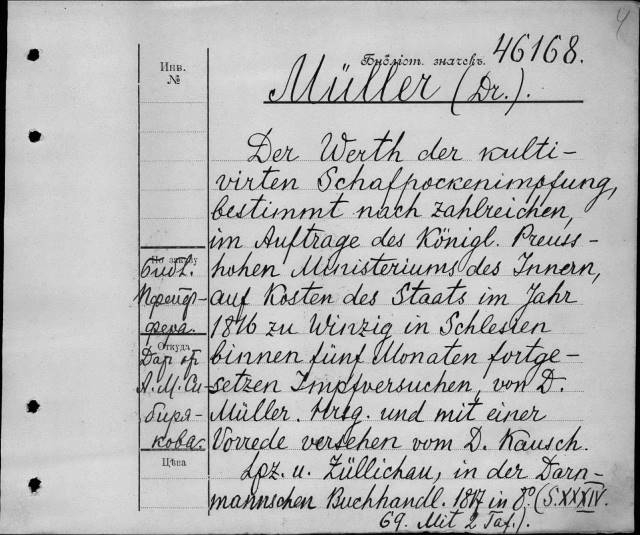 4
Библіот. значекъ. 46168.
Инв.
№
Müller (Dr.).
Der Werth der kulti-
virten Schafpockenimpfung,
bestimmt nach zahlreichen,
im Auftrage des Königl. Preuss-
По заказу
Библ.
hohen Ministeriums des Innern,
Пфейф-
auf Kosten des Staats im Jahr
фера.
1816 zu Winzig in Schlesien
Откуда
Дар от
binnen fünf Monaten fortge-
А. М. Си-
setzen Impfversuchen, von D.
биря-
Müller. Hrsg. und mit einer
кова.
Vorrede versehen vom D. Kausch.
Цѣна
Lpz. u. Züllichau, in der Darn-
mannschen Buchhandl. 1817 in 8º (S. XXXIV.
69. Mit 2 Taf.).